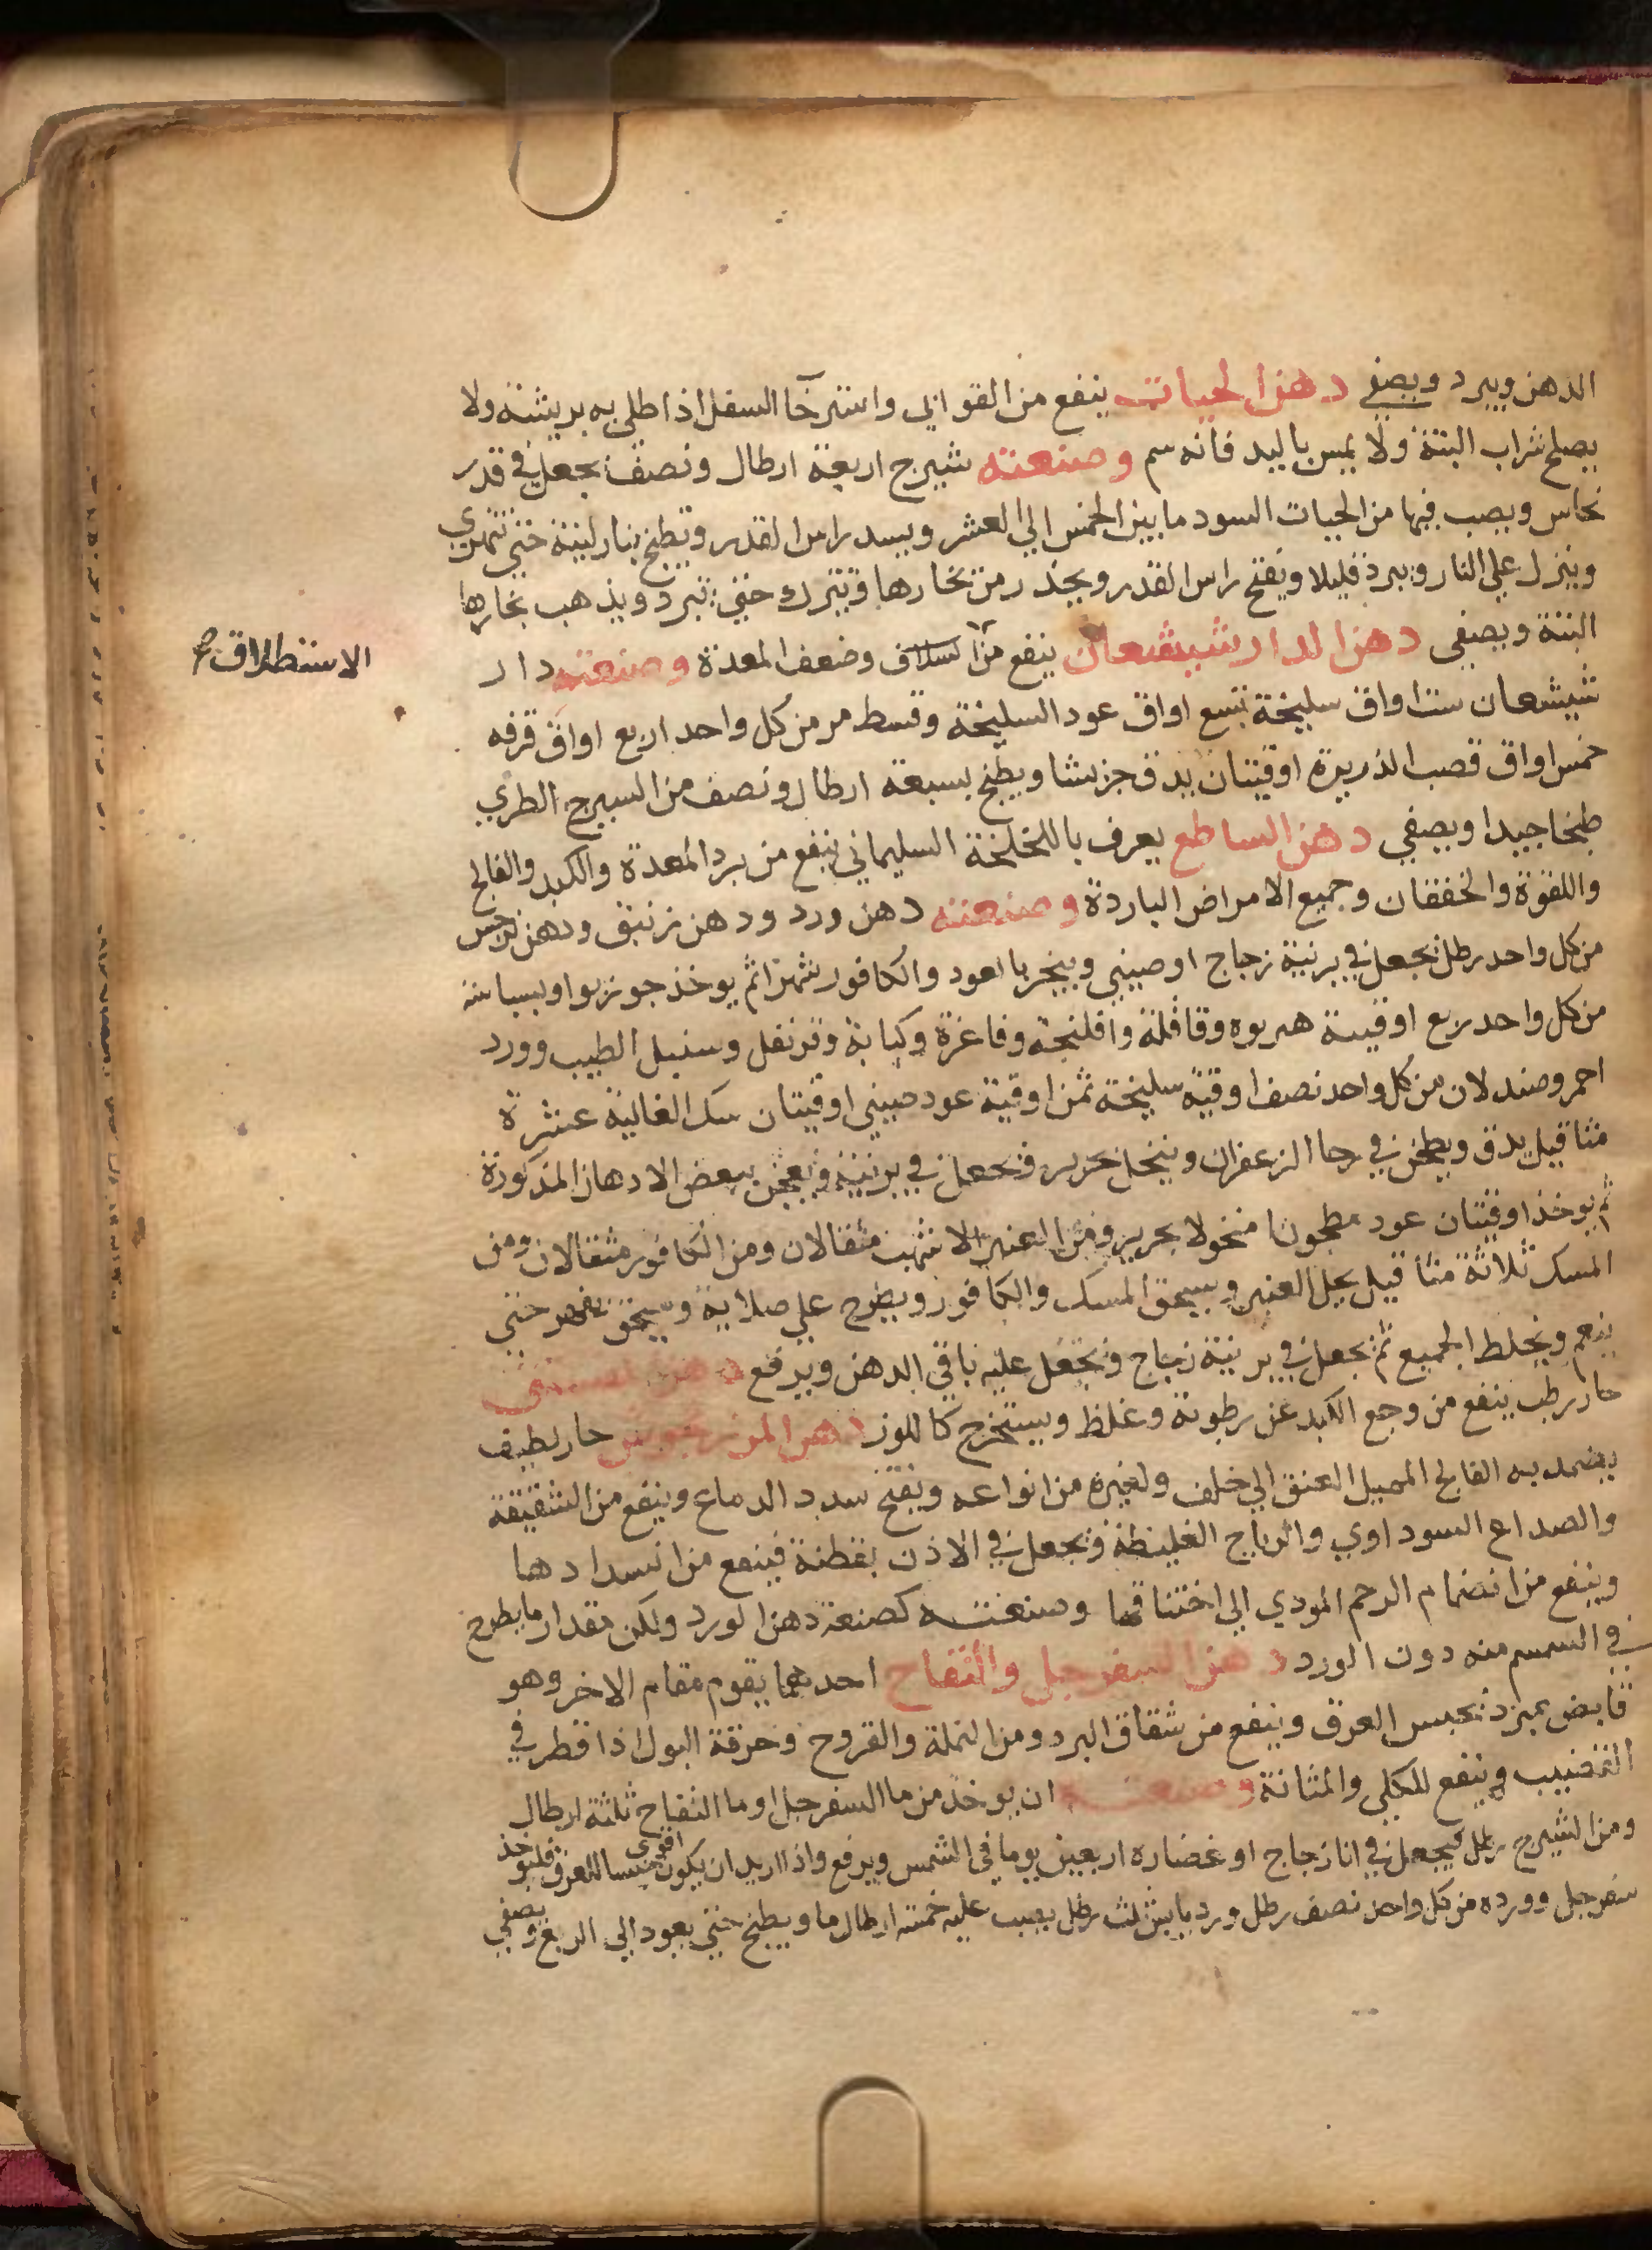 الدهن ويبرد ويصفي دهن الحيات ينفع من القوابي واسترخا السفل اذا طلي به بريشه ولا
يصلح شراب البتة ولا يمس باليد فانه سم وصنعته شيرج اربعة ارطال ونصف يجعل في قدر
نحاس ويصب فيها من الحيات السود ما بين الخمس الي العشر ويسد راس القدر وتطبخ بنار لينة حتي تتهري
وينزل علي النار ويبرد قليلا ويفتح راس القدر ويحذر من بخارها وتترك حتي تبرد ويذهب بخارها
البتة ويصفي دهن الدارشيشعان ينفع من وضعف المعدة وصنعته دار
الاستطلاق صح
شيشعان ست اواق سليخة تسع اواق عود السليخة وقسط مر من كل واحد اربع اواق قرفه
خمس اواق قصب الذريرة اوقيتان يدق جريشا ويطبخ بسبعة ارطال ونصف من السيرج الطري
طبخا جيدا ويصفي دهن الساطع يعرف باللخلخة السليماني ينفع من برد المعدة والكبد والفالج
واللقوة والخفقان وجميع الامراض الباردة وصنعته دهن ورد ودهن زنبق ودهن نرجس
من كل واحد رطل يجعل في برنية زجاج او صيني ويبخر بالعود والكافور شهرا ثم يوخذ جوزبوا وبسباسه
من كل واحد ربع اوقيه هربوه وقاقلة وافلنجة وفاغرة وكبابة وقرنفل وسنبل الطيب وورد
احمر وصندلان من كل واحد نصف اوقية سليخة ثمن اوقية عود صيني اوقيتان سك الغالية عشرة
مثاقيل يدق ويطحن في رحا الزعفران وينخل بحرير وتجعل في برنية وتعجن ببعض الادهان المذكورة
ثم يوخذ اوقيتان عود مطحونا منخولا بحرير ومن العنبر الاشهب مثقالان ومن الكافور مثقالان ومن
المسك ثلاثة مثاقيل يحل العنبر ويسحق المسك والكافور ويطرح علي صلاية وسحق حتي
ينعم ويخلط الجميع ثم يجعل في برنية زجاج وتجعل عليه باقي الدهن ويرفع دهن
حار رطب ينفع من وجع الكبد عن رطوبة وغلظ ويستخرج كاللوز دهن المرزنجوش حار لطيف
يضمد به الفالج المميل العنق الي خلف ولغيره من انواعه ويفتح سدد الدماغ وينفع من الشقيقة
والصداع السوداوي والرياح الغليظة وتجعل في الاذن بقطنة فينفع من انسدادها
وينفع من انضمام الرحم المودي الي اختناقها وصنعته كصنعة دهن الورد ولكن مقدار ما يطرح
في السمسم منه دون الورد دهن السفرجل والتفاح احدهما يقوم مقام الاخر وهو
قابض يبرد يحبس العرق وينفع من شقاق البرد ومن النملة والقروح وحرقة البول اذا قطر في
القضيب وينفع للكلي والمثانة وصنعته ان يوخذ من ما السفرجل او ما التفاح ثلثة ارطال
ومن الشيرج رطل فيجعل في انا زجاج او غضاره اربعين يوما في الشمس ويرفع واذا اريد ان يكون اقوي حبسا للعرق فليوخذ
سفرجل وورده من كل واحد نصف رطل ورد يابس ثلث رطل يصب عليه خمسة ارطال ما ويطبخ حتي يعود الي الربع ويصفي